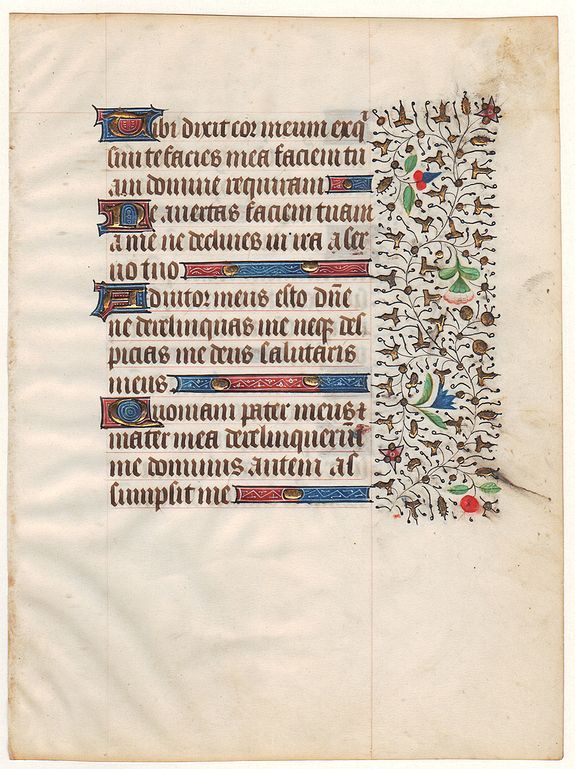 Tibi dixit cor meum exq̄
sivit te facies mea faciem tu
am domine requiram
Ne avertas faciem tuam
a me ne declines in ira a ser
vo tuo
Adiutor meus esto dn̄e
ne derelinquas me neq̄ des
picias me deus salutaris
meus
Quoniam pater meus ⁊
mater mea derelinquerūt
me dominus autem as
sumpsit me